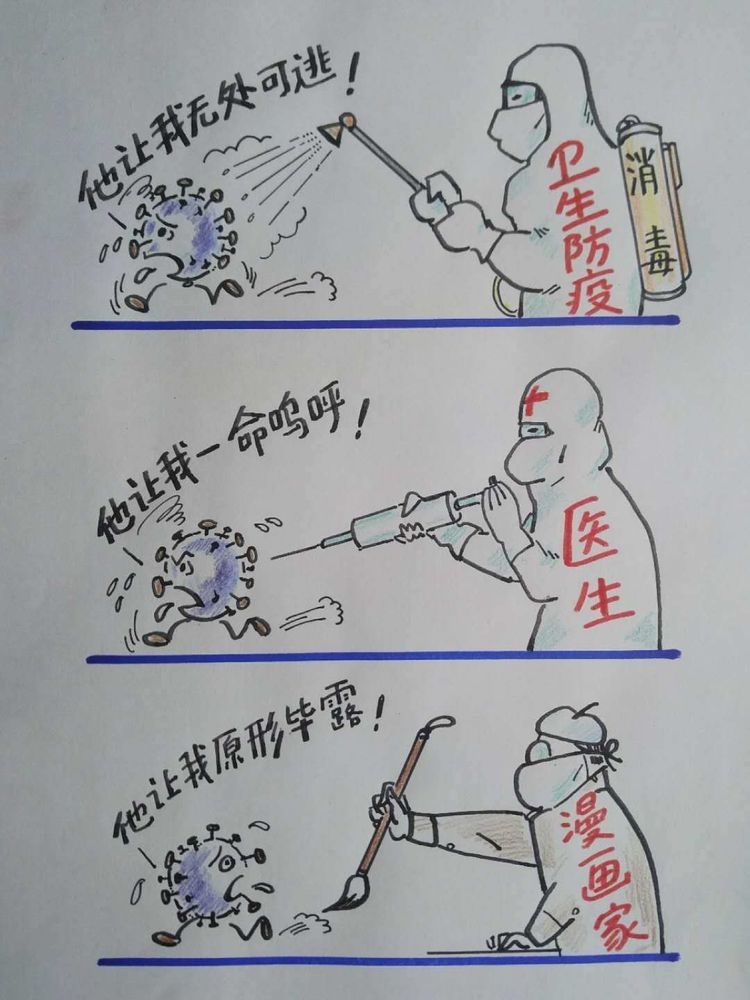 他让我无处可逃!
卫生防疫
消毒
他让我一命呜呼!
医生
他让我原形毕露!
漫画家